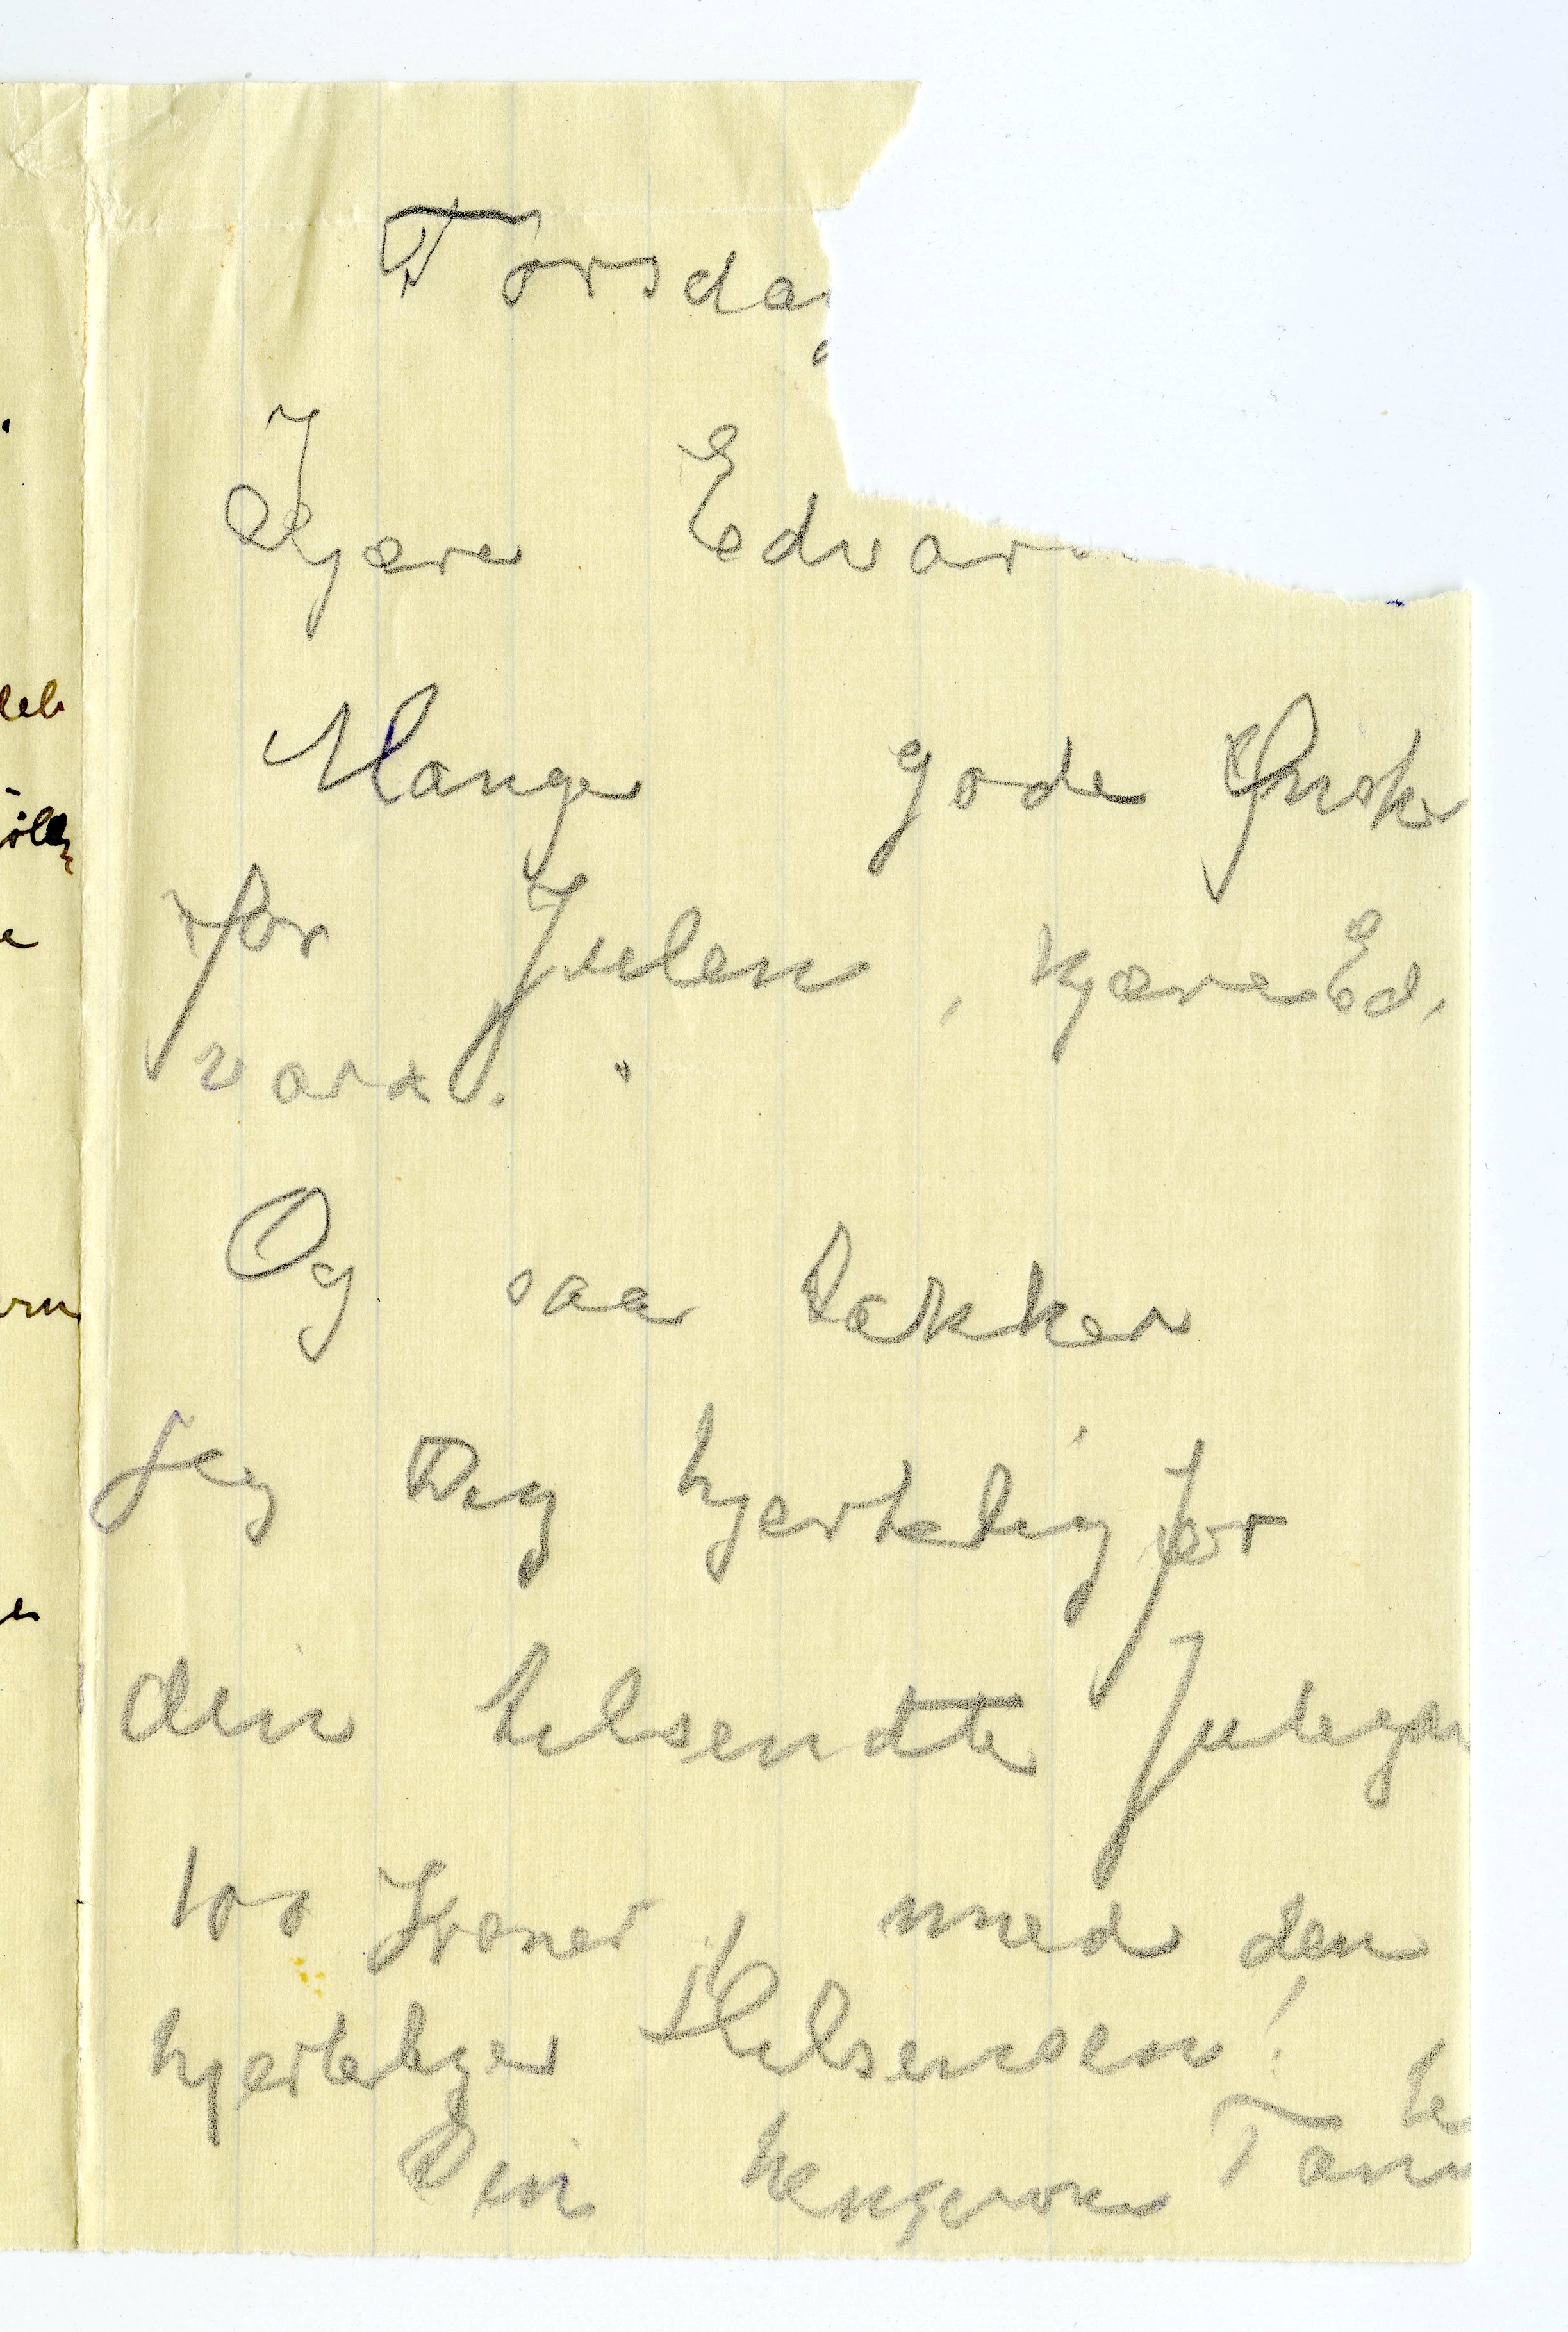 Torsda
Kjære Edvar
Mange gode Ønske
for Julen, kjære Ed,
vard.
Og saa takker
jeg Deg hjertelig for
den tilsendte Julegav
100 Kroner med den
hjertelige Hilsensen!
Din hengivne Tan
te